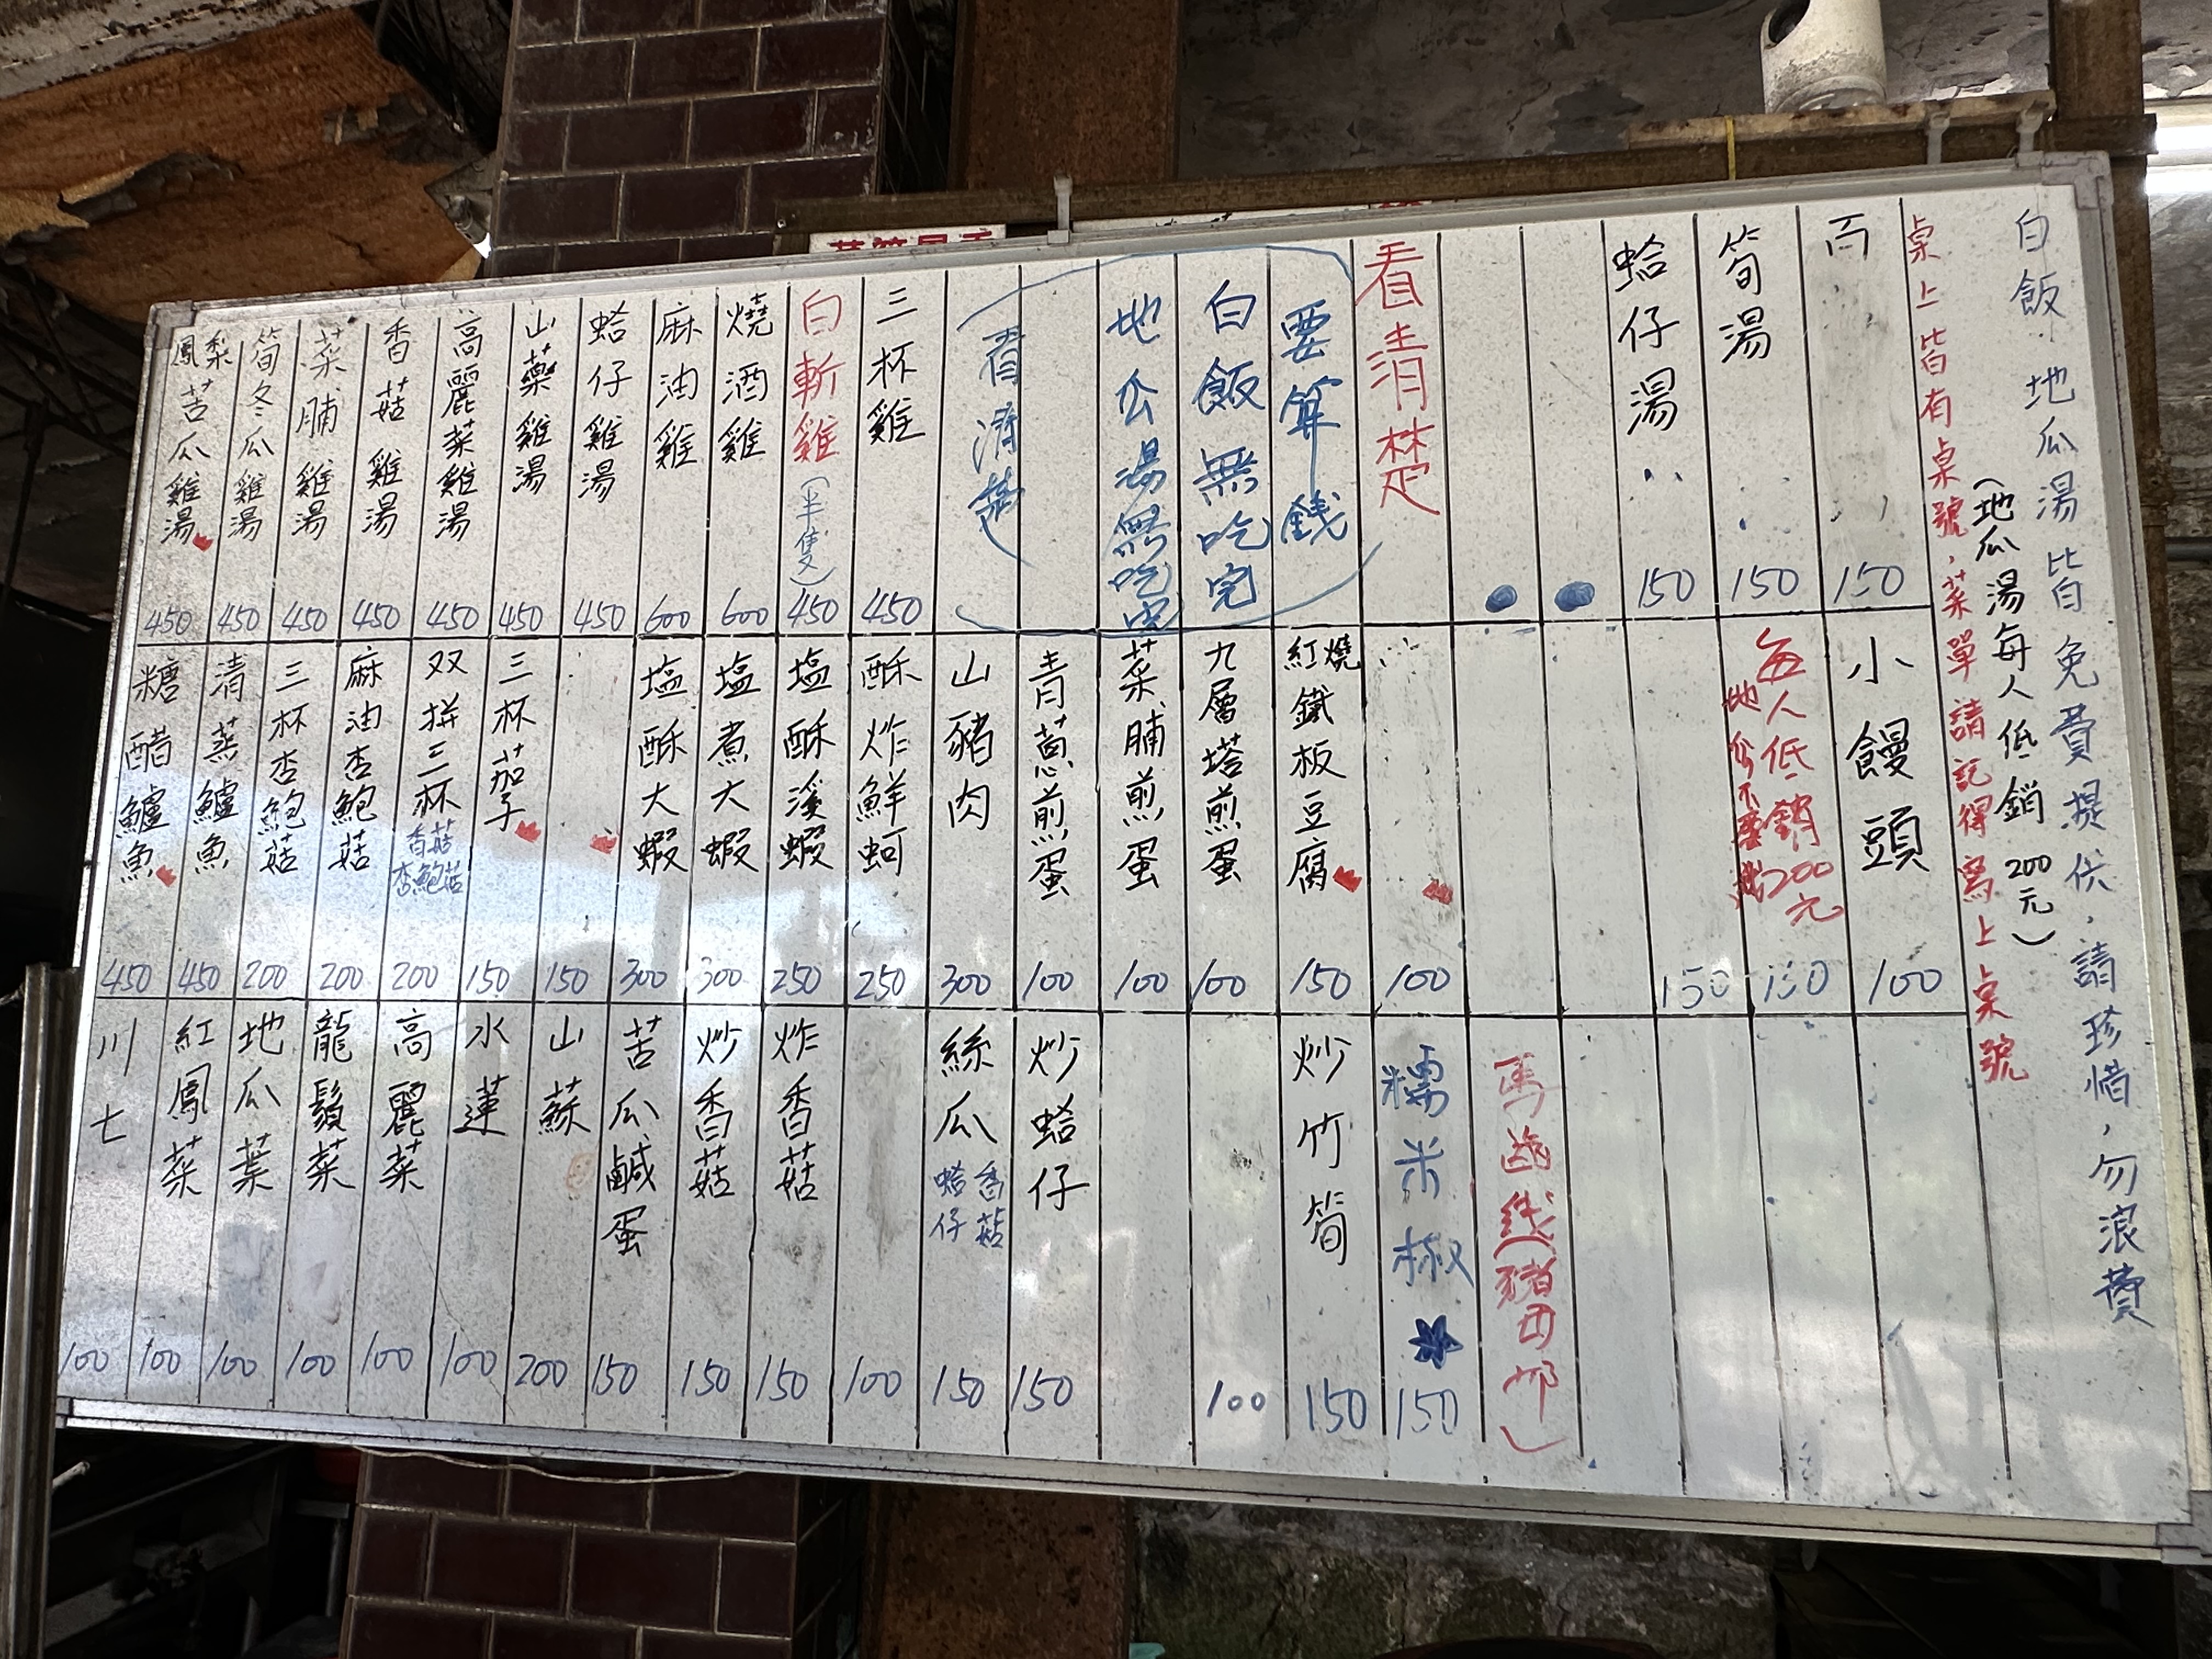 白飯.地瓜湯皆免費提供,請珍惜,勿浪費
(地瓜湯每人低銷200元)
桌上皆有桌號,菜單請記得寫上桌號
150
筍湯 150
蛤仔湯 150
看清楚
要算錢
白飯無吃完
地公湯無吃完
看清楚
三杯雞 450
白斬雞(半隻) 450
燒酒雞 600
麻油雞 600
蛤仔雞湯 450
山藥雞湯 450
高麗菜雞湯 450
香菇雞湯 450
菜脯雞湯 450
筍冬瓜雞湯 450
鳳梨苦瓜雞湯 450
小饅頭 100
每人低銷200元
150
150
100
紅燒鐵板豆腐 150
九層塔煎蛋 100
菜脯煎蛋 100
青蔥煎蛋 100
山豬肉 300
酥炸鮮蚵 250
塩酥溪蝦 250
塩煮大蝦 300
塩酥大蝦 300
150
三杯茄子 150
双拼三杯 香菇 杏鮑菇 200
麻油杏鮑菇 200
三杯杏鮑菇 200
清蒸鱸魚 450
糖醋鱸魚 450
糯米椒 150
炒竹筍 150
100
炒蛤仔 150
絲瓜 香菇 蛤仔 150
100
炸香菇 150
炒香菇 150
苦瓜鹹蛋 150
山蘇 200
水蓮 100
高麗菜 100
龍鬚菜 100
地瓜葉 100
紅鳳菜 100
川七 100